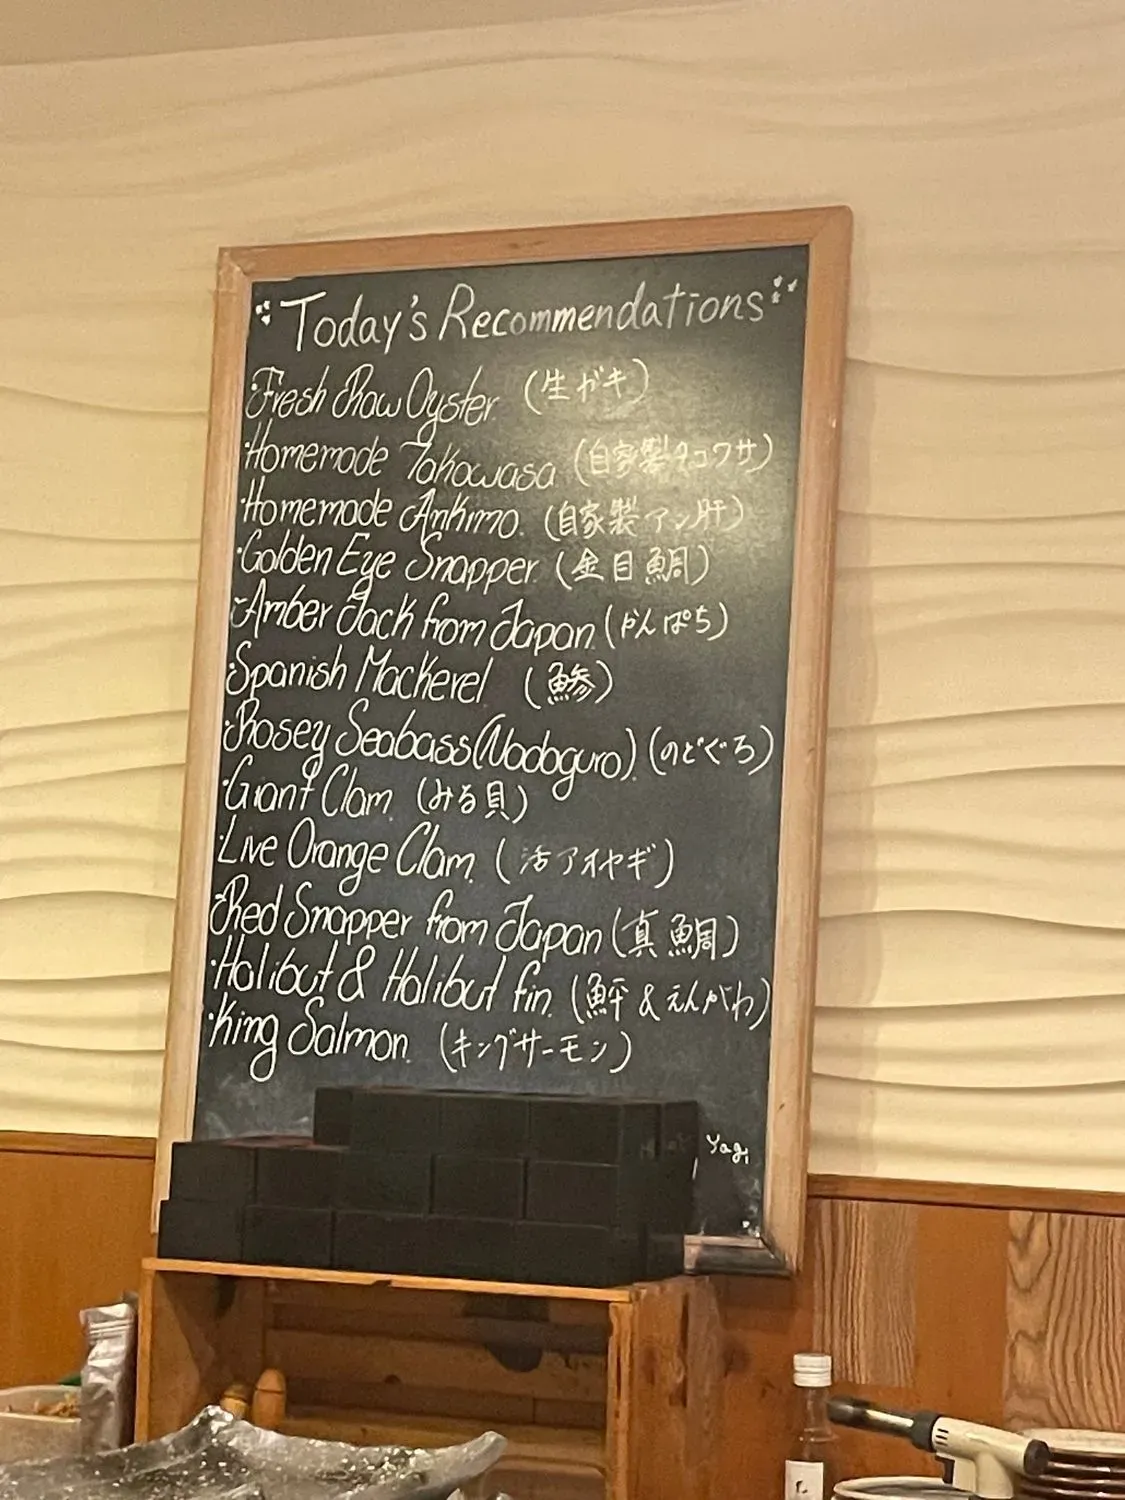 Today's Recommendations
・Fresh Raw Oyster (生ガキ)
・Homemade Takowasa (自家製タコワサ)
・Homemade Ankimo. (自家製アン肝)
・Golden Eye Snapper. (金目鯛)
・Amber Jack from Japan. (かんぱち)
・Spanish Mackerel (鰺)
・Rosey Seabass (Nodoguro). (のどぐろ)
・Giant Clam. (みる貝)
・Live Orange Clam. (活アオヤギ)
・Red Snapper from Japan (真鯛)
・Halibut & Halibut fin. (鮃 & えんがわ)
・King Salmon. (キングサーモン)
Yagi